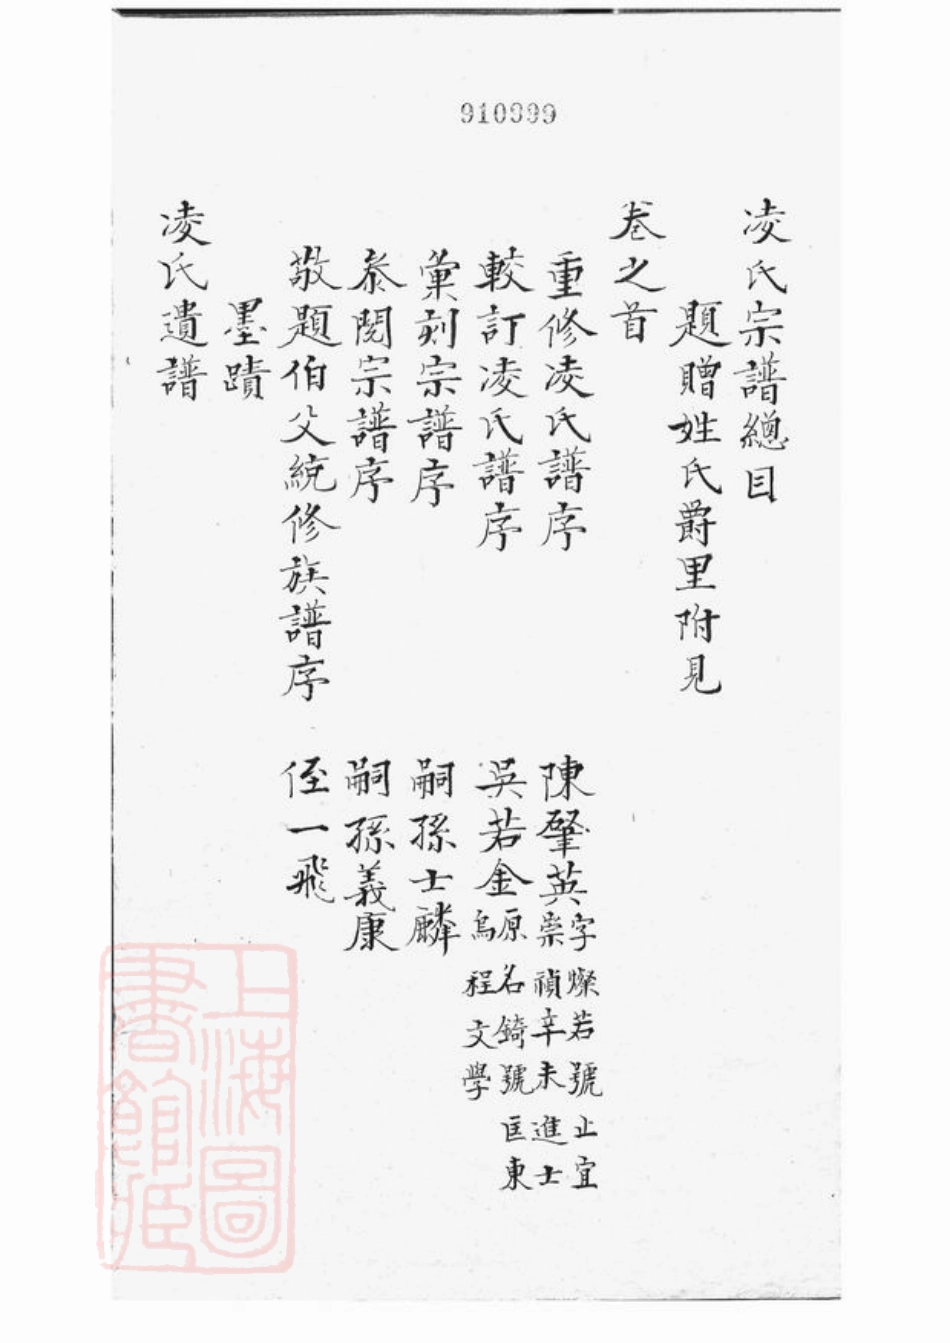 910999
凌氏宗譜總目
題贈姓氏爵里附見
卷之首
重修凌氏譜序 陳肇英 字燦若號止宜 崇禎辛未進士
較訂凌氏譜序 吳若金 原名錡號匡東 烏程文學
彙刻宗譜序 嗣孫士麟
叅閱宗譜序 嗣孫義康
敬題伯父統修族譜序 侄一飛
墨蹟
凌氏遺譜
上海圖書館藏